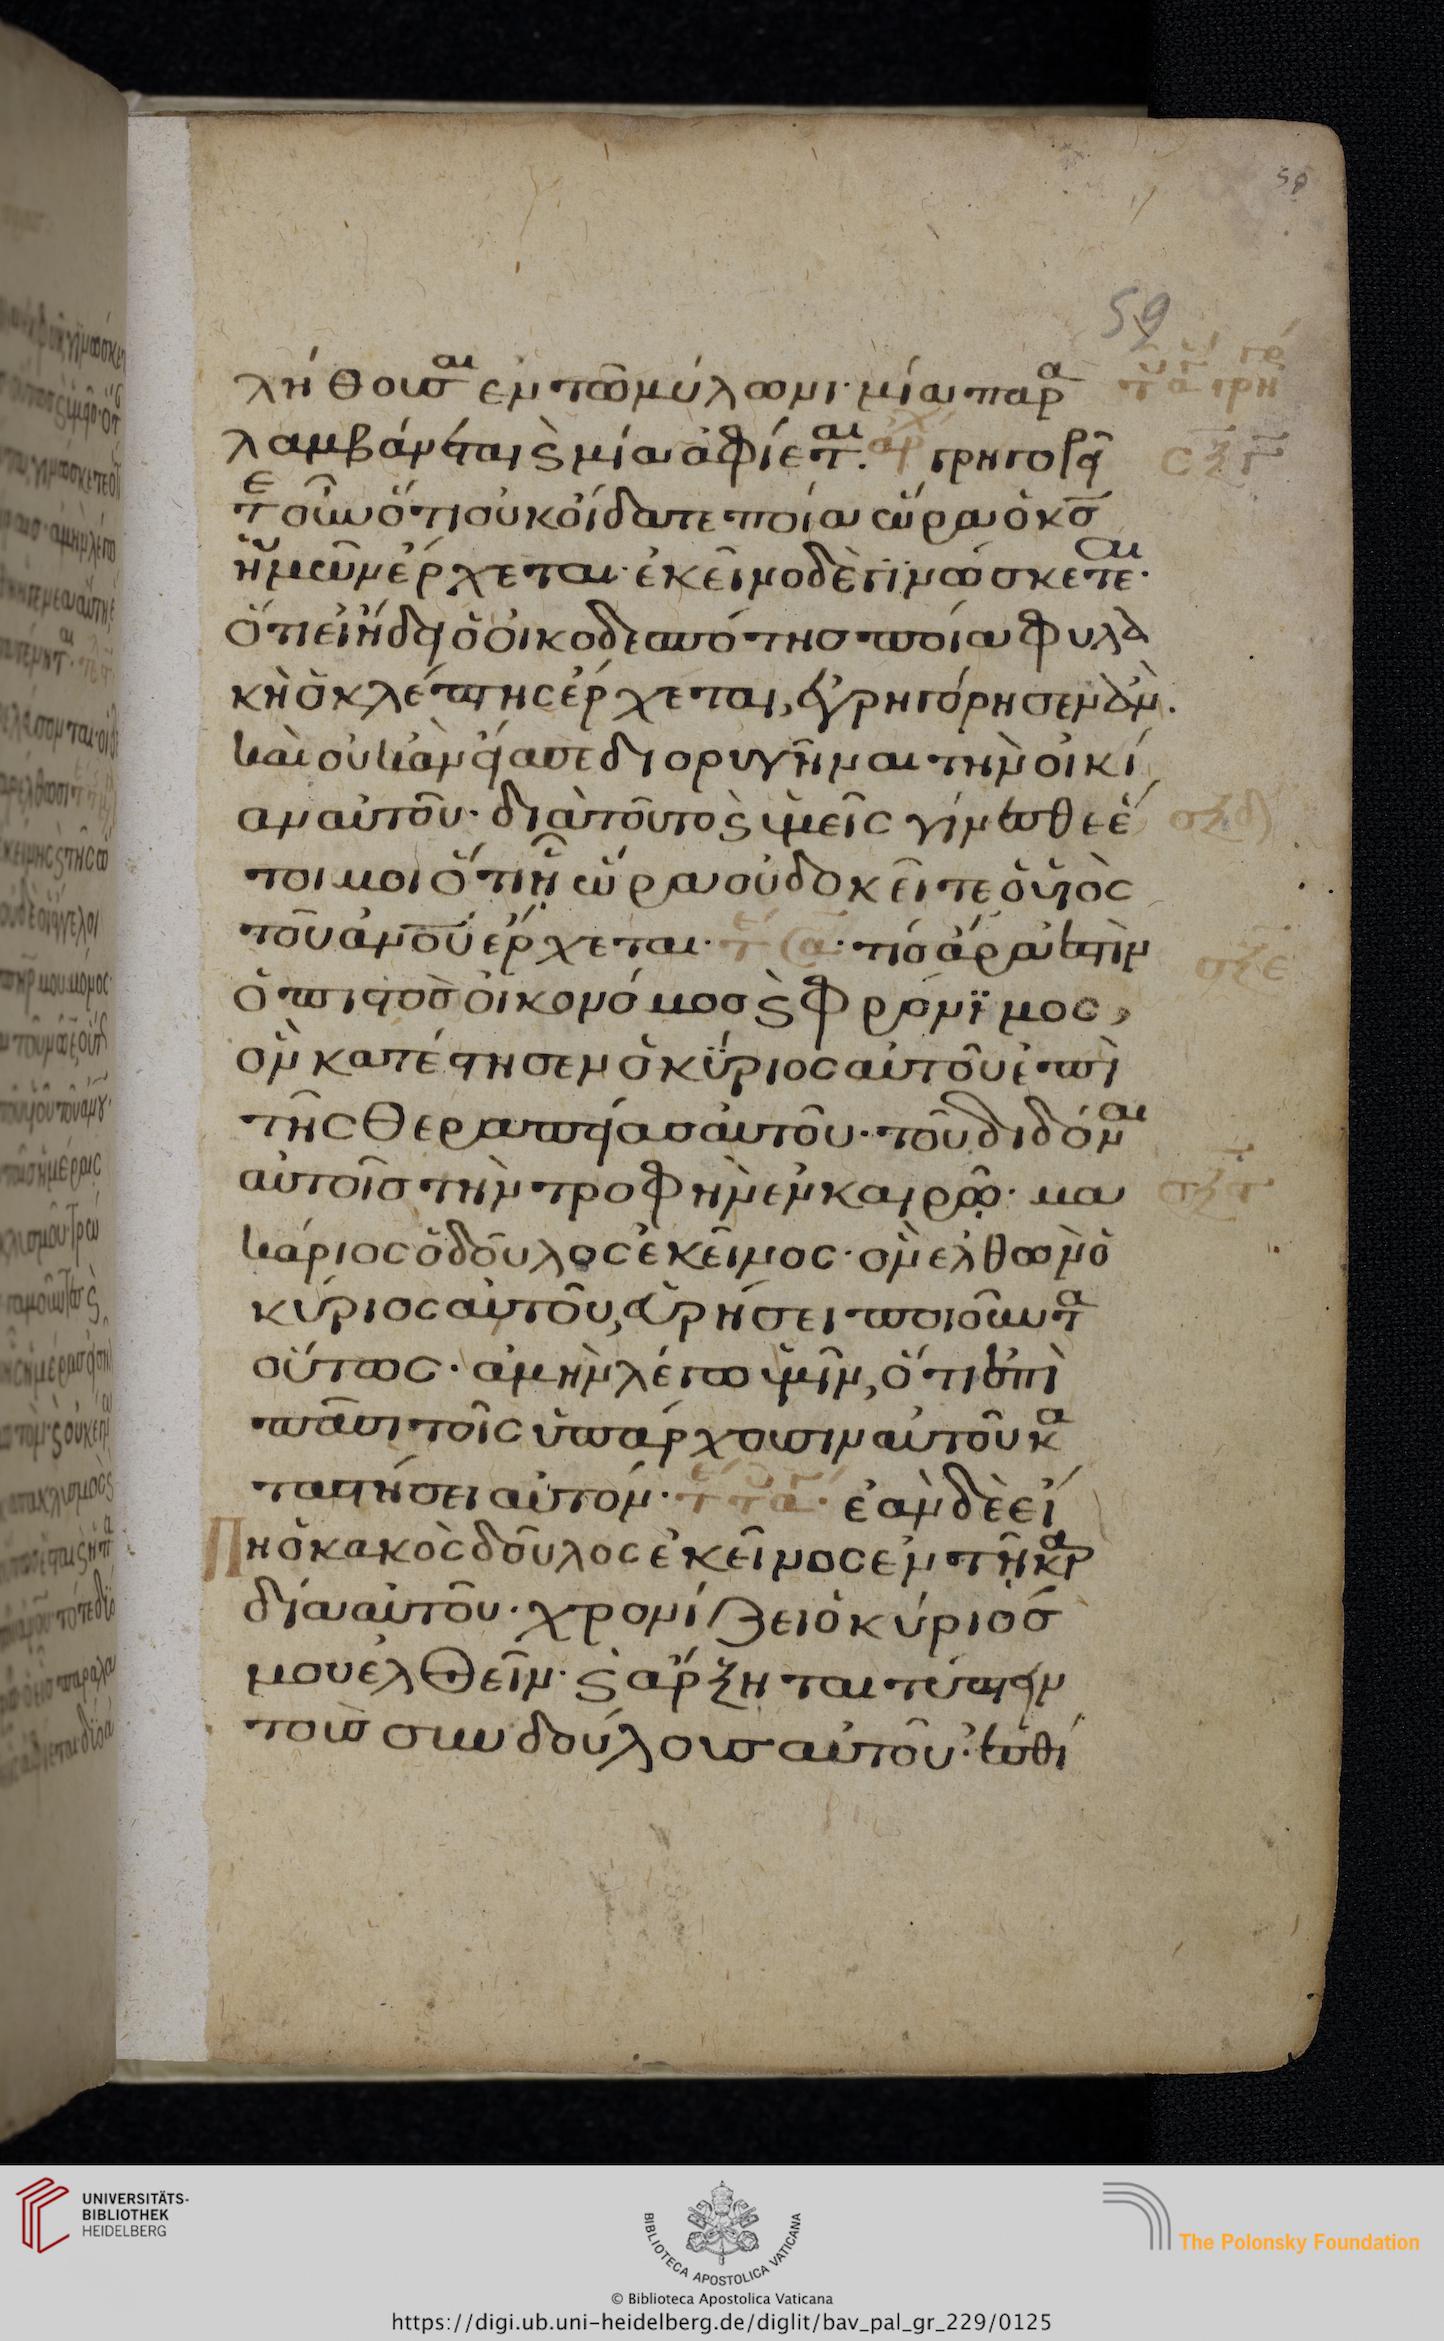 59
59
λήθουσαι ἐν τῶ μύλωνι· μία παρα
λαμβάνεται ϛ μία ἀφίεται. γρηγορεῖ
τε οὖν ὅτι οὐκ οἴδατε ποία ὥρα ὁ κς
ἡμῶν ἔρχεται· ἐκεῖνο δὲ γϊνώσκεται·
ὅτι εἰ ἤδει ὁ οἰκοδεσπότης ποία φυλα
κὴ ὁ κλέπτης ἔρχεται, ἐγρηγόρησεν ἀν.
καὶ οὐκ ἀν εἴασε διορυγῆναι τὴν οἰκί
αν αὐτοῦ· διὰ τοῦτο ϛ ὑμεῖς γίνεσθε ἕ
τοιμοι ὅτι ἧ ὥρα οὐ δοκεῖτε ὁ υἱὸς
τοῦ ανου ἔρχεται· τίς ἄρα ἐστὶν
ὁ πιστὸς οἰκονόμος ϛ φρόνϊμος,
ὃν κατέστησεν ὁ κύριος αὐτοῦ ἐπὶ
τῆς θεραπείας αὐτοῦ· τοῦ διδόναι
αὐτοῖς τὴν τροφὴν ἐν καιρῷ· μα
κάριος ὁ δοῦλος ἐκεῖνος· ὃν ἐλθὼν ὁ
κύριος αὐτοῦ, εὑρήσει ποιοῦντα
οὕτως· ἀμὴν λέγω ὑμῖν, ὅτι ἐπὶ
πᾶσι τοῖς ὑπάρχουσιν αὐτοῦ κα
ταστήσει αὐτόν· ἐὰν δὲ εἴ
πη ὁ κακὸς δοῦλος ἐκεῖνος ἐν τῆ καρ
δία αὐτοῦ· χρονίζει ὁ κύριός
μου ἐλθεῖν· ϛ ἄρξηται τύπτειν
τοὺς συνδούλους αὐτοῦ· ἐσθί
UNIVERSITÄTS-
BIBLIOTHEK
HEIDELBERG
BIBLIOTECA APOSTOLICA VATICANA
The Polonsky Foundation
© Biblioteca Apostolica Vaticana
https://digi.ub.uni-heidelberg.de/diglit/bav_pal_gr_229/0125